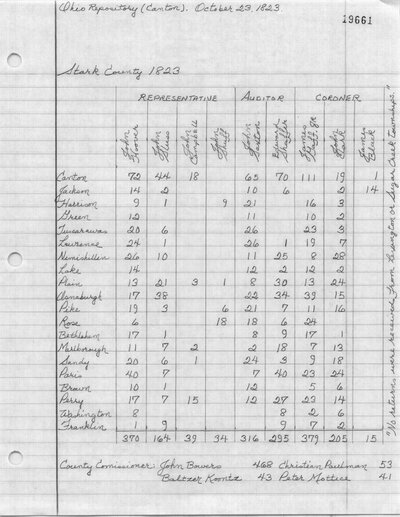 Ohio Repository (Canton). October 23, 1823.
29661
Stark County 1823
REPRESENTATIVE AUDITOR CORONER
John Hoover John John Campbell John John Edward Shaffer James Jr John James
Canton 72 44 18 65 70 111 19 1
Jackson 14 2 10 6 2 14
Harrison 9 1 9 21 16 3
Green 12 11 10 2
Tuscarawas 20 6 26 23 3
Lawrence 24 1 26 1 19 7
Nimishillen 26 10 11 25 8 28
Lake 14 12 2 12 2
Plain 13 21 3 1 8 30 13 24
Osnaburgh 17 38 22 34 39 15
Pike 19 3 6 21 7 11 16
Rose 6 18 18 6 24
Bethlehem 17 1 8 9 17 1
Marlborough 11 7 2 2 18 7 13
Sandy 20 6 1 24 3 9 18
Paris 40 7 7 40 23 24
Brown 10 1 12 5 6
Perry 17 7 15 12 27 23 14
Washington 8 8 2 6
Franklin 1 9 9 7 2
370 164 39 34 316 295 379 205 15
County Comissioner: John Bowers 468 Christian Paulman 53
Baltzer Koontz 43 Peter Mottice 41
"No returns were received from Lexington or Sugar Creek townships."